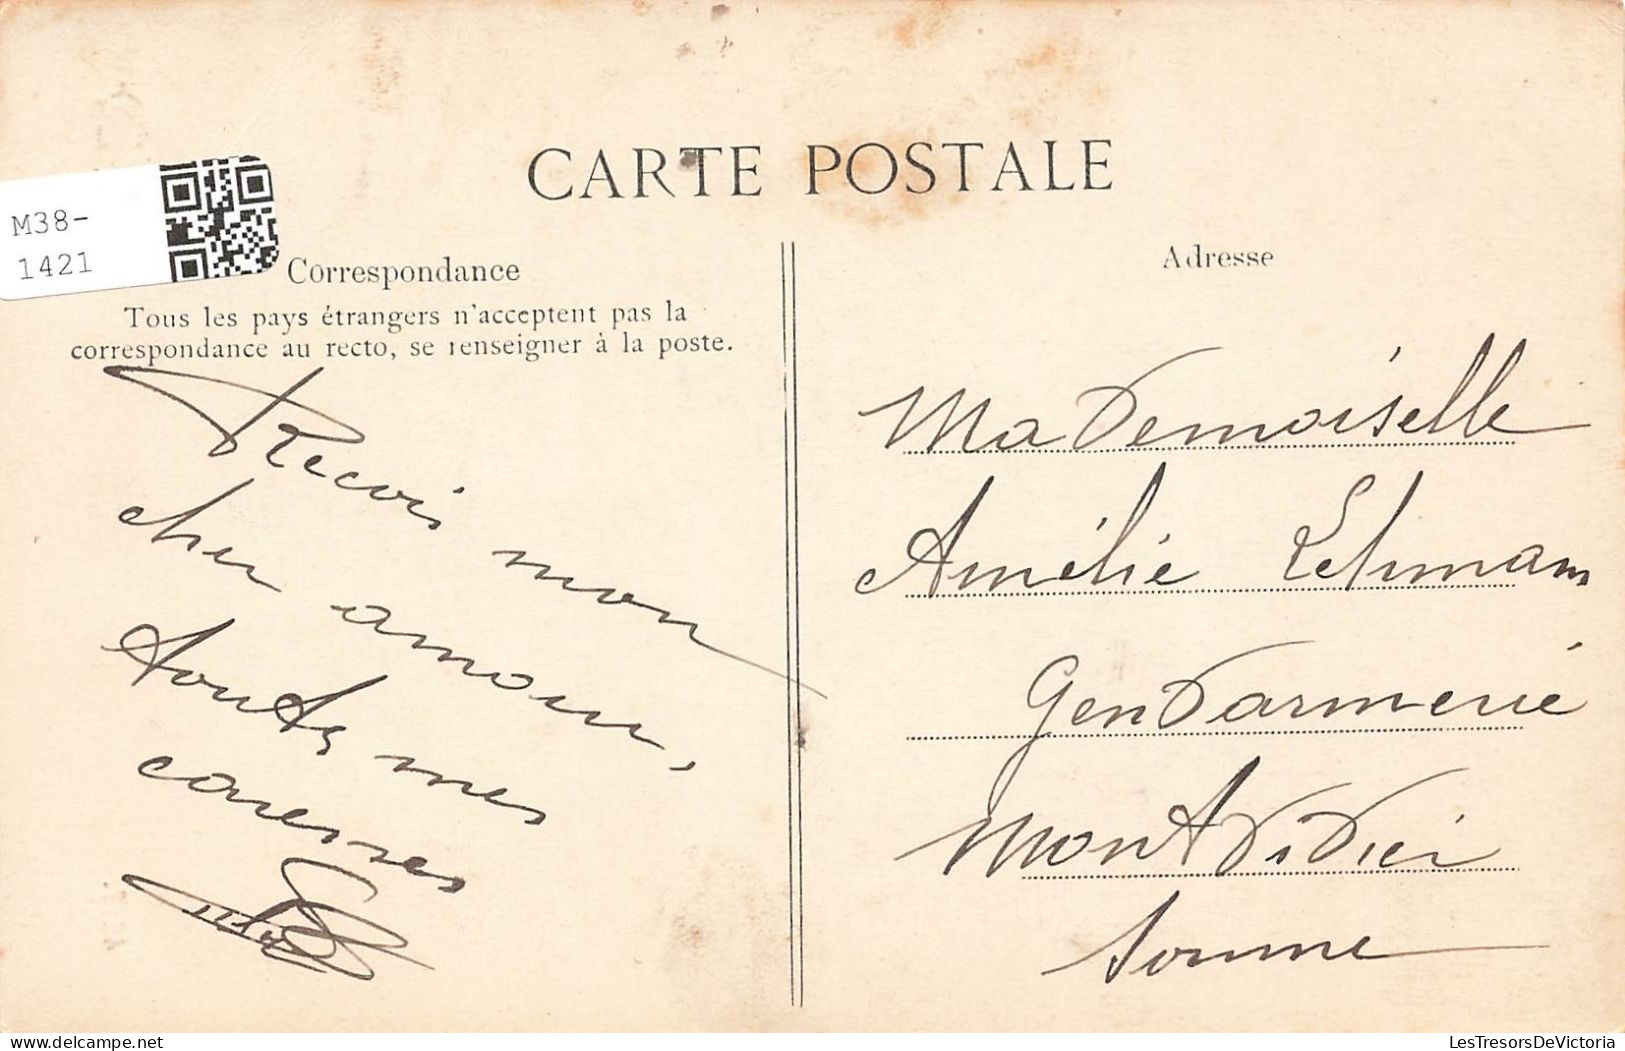 CARTE POSTALE
M38-
1421
Correspondance
Tous les pays étrangers n'acceptent pas la
correspondance au recto, se renseigner à la poste.
Recois mon
cher amour,
toutes mes
caresses
Adresse
MaDemoiselle
Amélie Lehmam
GenDarmerie
MontDiDier
Somme
delcampe.net
LesTresorsDeVictoria